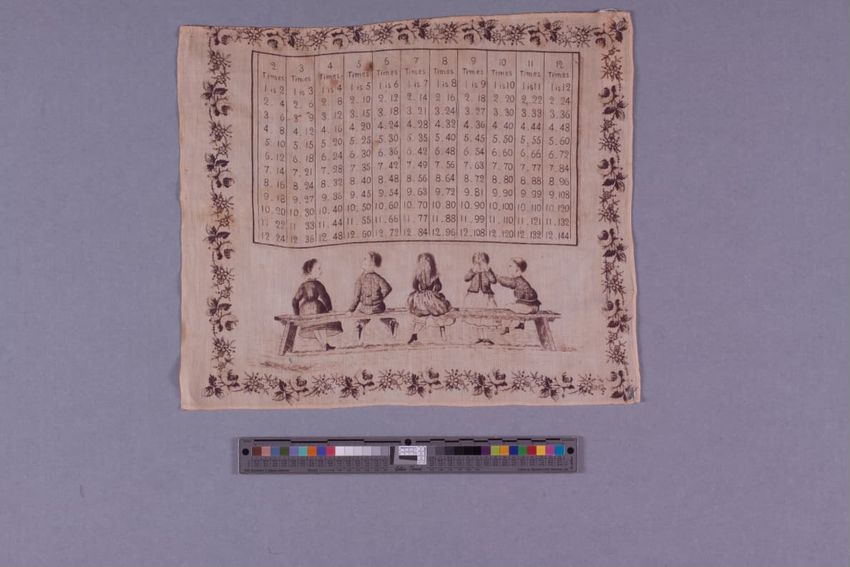 2 3 4 5 6 7 8 9 10 11 12
Times Times Times Times Times Times Times Times Times Times Times
1 is 2 1 is 3 1 is 4 1 is 5 1 is 6 1 is 7 1 is 8 1 is 9 1 is 10 1 is 11 1 is 12
2. 4 2. 6 2. 8 2. 10 2. 12 2. 14 2. 16 2. 18 2. 20 2. 22 2. 24
3. 6 3. 9 3. 12 3. 15 3. 18 3. 21 3. 24 3. 27 3. 30 3. 33 3. 36
4. 8 4. 12 4. 16 4. 20 4. 24 4. 28 4. 32 4. 36 4. 40 4. 44 4. 48
5. 10 5. 15 5. 20 5. 25 5. 30 5. 35 5. 40 5. 45 5. 50 5. 55 5. 60
6. 12 6. 18 6. 24 6. 30 6. 36 6. 42 6. 48 6. 54 6. 60 6. 66 6. 72
7. 14 7. 21 7. 28 7. 35 7. 42 7. 49 7. 56 7. 63 7. 70 7. 77 7. 84
8. 16 8. 24 8. 32 8. 40 8. 48 8. 56 8. 64 8. 72 8. 80 8. 88 8. 96
9. 18 9. 27 9. 36 9. 45 9. 54 9. 63 9. 72 9. 81 9. 90 9. 99 9. 108
10. 20 10. 30 10. 40 10. 50 10. 60 10. 70 10. 80 10. 90 10. 100 10. 110 10. 120
11. 22 11. 33 11. 44 11. 55 11. 66 11. 77 11. 88 11. 99 11. 110 11. 121 11. 132
12. 24 12. 36 12. 48 12. 60 12. 72 12. 84 12. 96 12. 108 12. 120 12. 132 12. 144